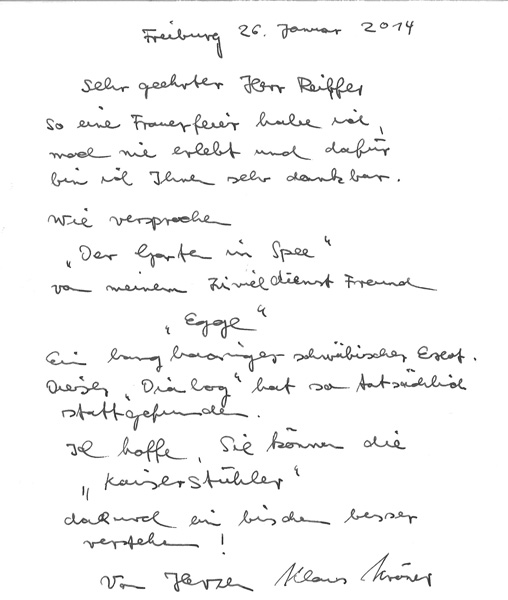 Freiburg 26. Januar 2014
Sehr geehrter Herr Reiffer
So eine Trauerfeier habe ich,
noch nie erlebt und dafür
bin ich Ihnen sehr dankbar.
Wie versprochen
„Der Garten in Spee“
von meinem Zivieldienst Freund
„Egge“
Ein langhaariger schwäbischer Exot.
Dieser „Dialog“ hat so tatsächlich
stattgefunden.
Ich hoffe, Sie können die
„Kaiserstühler“
dadurch ein bischen besser
verstehen!
Von Herzen Klaus